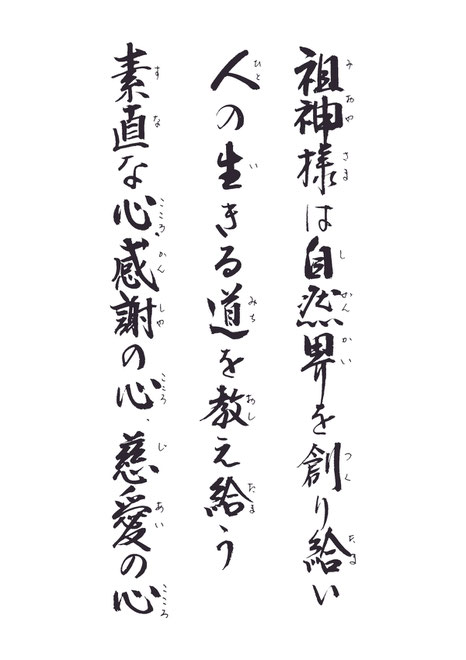 祖神様は自然界を創り給い
人の生きる道を教え給う
素直な心、感謝の心、慈愛の心